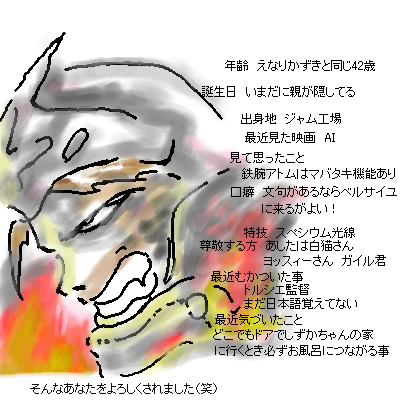 年齢 えなりかずきと同じ42歳
誕生日 いまだに親が隠してる
出身地 ジャム工場
最近見た映画 AI
見て思ったこと
鉄腕アトムはマバタキ機能あり
口癖 文句があるならベルサイユ
に来るがよい！
特技 スペシウム光線
尊敬する方 あしたは白猫さん
ヨッスィーさん ガイル君
最近むかついた事
トルシエ監督
まだ日本語覚えてない
最近気づいたこと
どこでもドアでしずかちゃんの家
に行くとき必ずお風呂につながる事
そんなあなたをよろしくされました（笑）